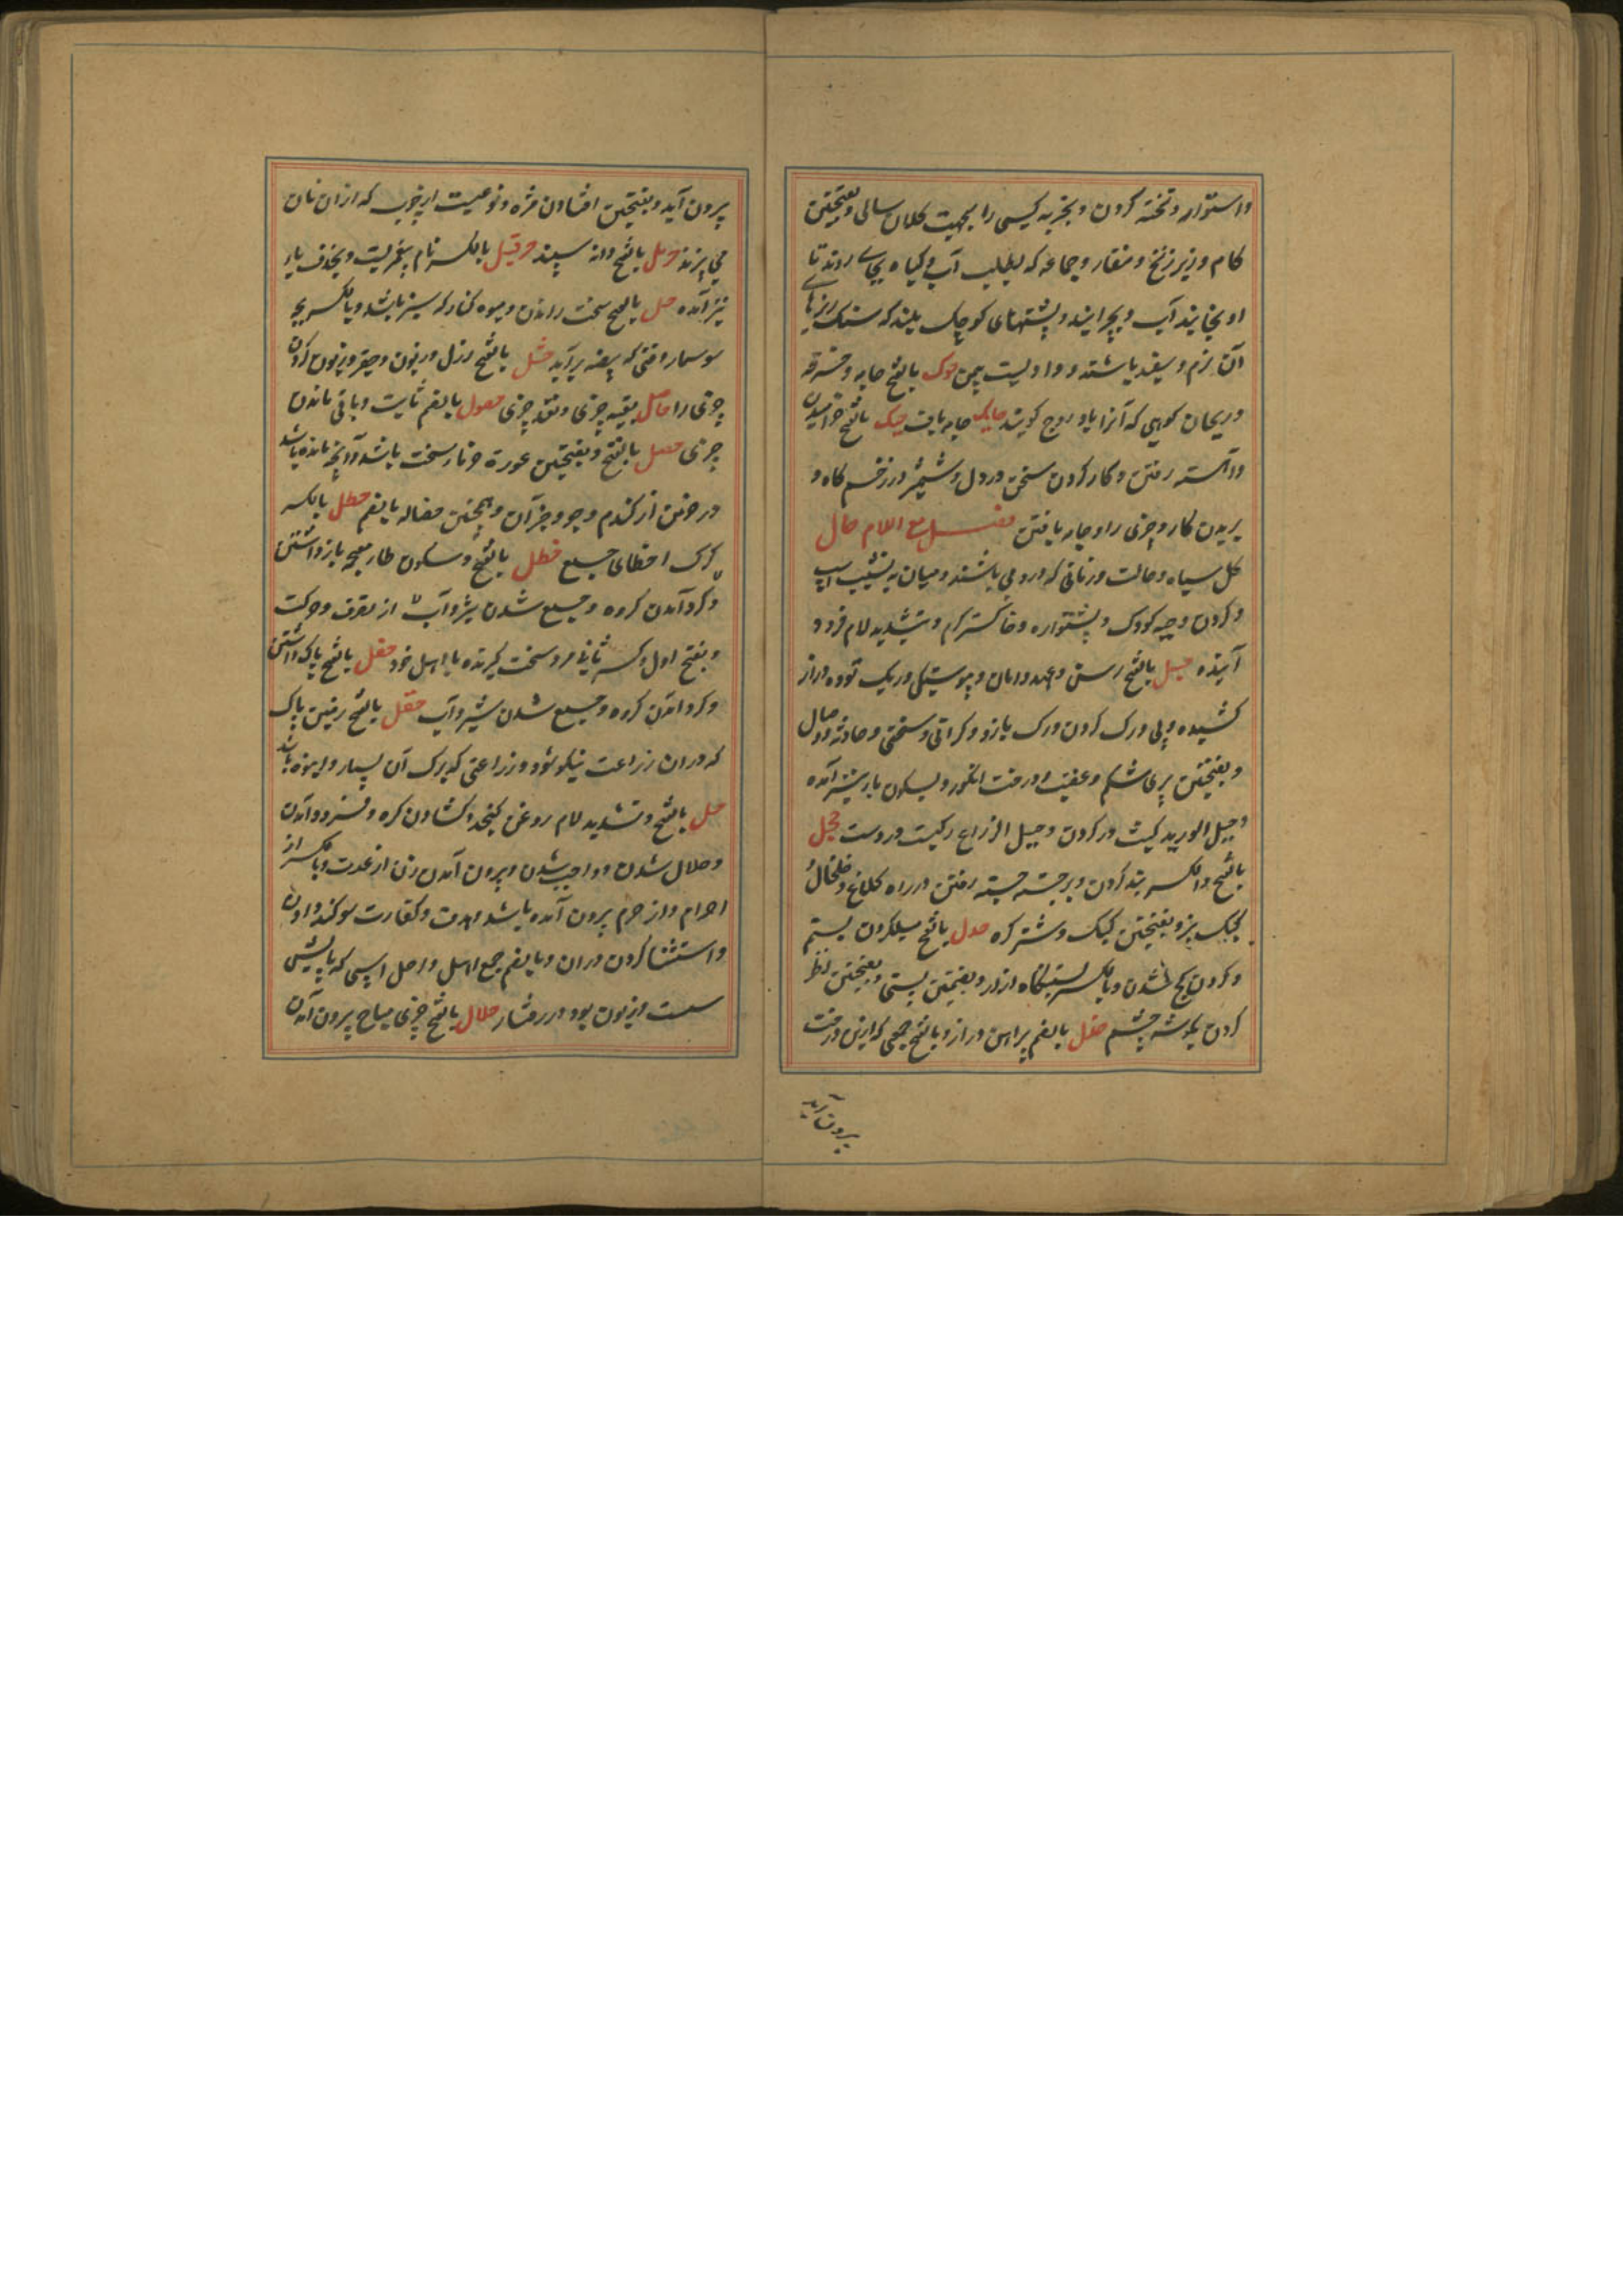 واستوار و تخته کردن و تجربه کسی را بجهت کلان سالی و بفتحتین
کام و زیر زنخ و منقار و جماعه که بطلب آب و گیاه بجای روند تا
او بخایند آب و بچرایند و پشتهای کوچک بلند که سنک ریزهای
آن نرم و سفید باشند و وادیست بیمن حوک بالفتح جامه و خرقه
و ریحان کوهی که آنرا بادروج کویند حایک جامه باف حیک بالفتح خرامیدن
و آهسته رفتن و کار کردن سخن در دل و شمشیر در زخم کاه و
بریدن کار و چیزی را و جامه بافتن فصل مع اللام حال
کل سیاه و حالت و زمانی که درو می باشند و میان به نشیب اسپ
و کردن و چه کودک و پشتواره و خاکستر کرم و بتشدید لام فرود
آینده حبل بالفتح رسن و عهد و امان و پیوستگی و ریک توده دراز
کشیده و پی و رک کردن و رک بازو و کرانی و سختی و حادثه و وصال
و بفتحتین پری شکم و غضب و درخت انگور و بسکون با نیز آمده
و حبل الورید کیست در کردن و حبل الذراع رکیست در دست حجل
بالفتح و الکسر بند کردن و برجسته جسته رفتن در راه کلاغ و خلخال
کبک نر و بفتحتین کبک و شتر کره حدل بالفتح میل کردن بستم
و کردن کج شدن و بالکسر بستنگاه ازار و بضمتین پستی و بفتحتین نظر
کردن بگوشه چشم حذل بالضم پیراهن دراز و بالفتح صمغی که از این درخت
بیرون آید
بیرون آید و بفتحتین افتادن مژه و نوعیست از حبوب که از ان نان
می پزند حرمل بالفتح دانه سپند حزقیل بالکسر نام پیغمبریست و بحذف یا
نیز آمده حسل بالفتح سخت راندن و میوه کنار که سبز باشد و بالکسر بچه
سوسمار وقتی که از بیضه برآید حشل بالفتح رذل و زبون و حقیر و زبون کردن
چیزی را حاصل بقیه چیزی و نقد چیزی حصول بالضم ثابت و باقی ماندن
چیزی حصل بالفتح و بفتحتین غوره خرما که سخت باشد و آنچه مانده باشد
در خرمن از کندم و جو و جز آن و همچنین حصاله بالضم حطل بالکسر
کرک احطال جمع حظل بالفتح و سکون طار معجمه بازداشتن
از تصرف و حرکت و کرد آمدن کروه و جمع شدن شیر و آب
و بفتح اول و کسر ثانی مرد سخت گیرنده با اهل خود حفل بالفتح پاک داشتن
و کرد آمدن کروه و جمع شدن شیر و آب حقل بالفتح زمین پاک
که در ان زراعت نیکو شود و زراعتی که برک آن بسیار و انبوه باشد
حل بالفتح و تشدید لام روغن کنجد و کشادن کره و فرود آمدن
و حلال شدن و واجب شدن و بیرون آمدن زن از عدت و بالکسر از
احرام و از حرم بیرون آمده باشد و هدف و کفارت سوکند دادن
و استثنا کردن در ان و بالضم جمع احل و احل اسپی که پایش
سست و زبون بود در رفتار حلال بالفتح چیزی مباح بیرون آمدن